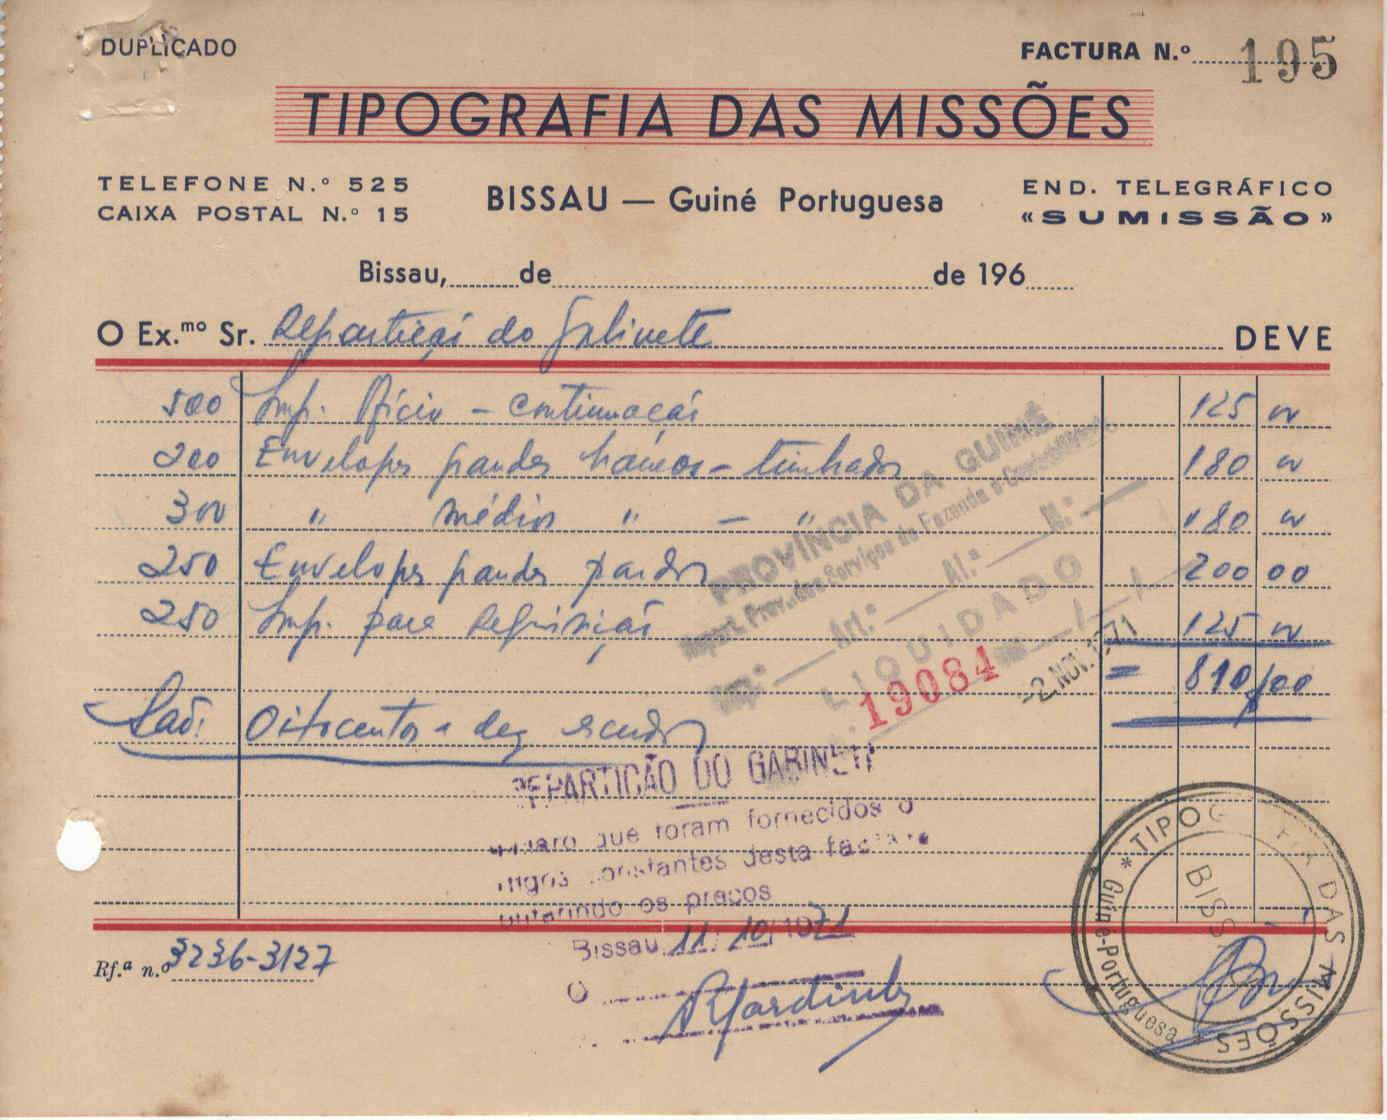 DUPLICADO
FACTURA N.º 195
TIPOGRAFIA DAS MISSÕES
TELEFONE N.º 525
CAIXA POSTAL N.º 15
BISSAU — Guiné Portuguesa
END. TELEGRÁFICO
«SUMISSÃO»
Bissau, de de 196
O Ex.mo Sr. Repartição do Gabinete DEVE
500 Imp. Ofício - continuação 125 00
200 Envelopes grandes brancos - timbrados 180 00
300 " médios " - " 180 00
250 Envelopes grandes pardos 200 00
250 Imp. para Requisição 125 00
= 810$00
São: Oitocentos e dez escudos
PROVÍNCIA DA GUINÉ
Repart. Prov. dos Serviços de Fazenda e Contabilidade
Cap.º Art.º Al.ª N.º
LIQUIDADO
19084 -2.NOV.1971
REPARTIÇÃO DO GABINETE
que foram fornecidos o
constantes desta factura
os preços
Bissau 11/10/1971
O
Rf.ª n.º 3236-3127
* TIPOGRAFIA DAS MISSÕES *
Guiné-Portuguesa
BISS